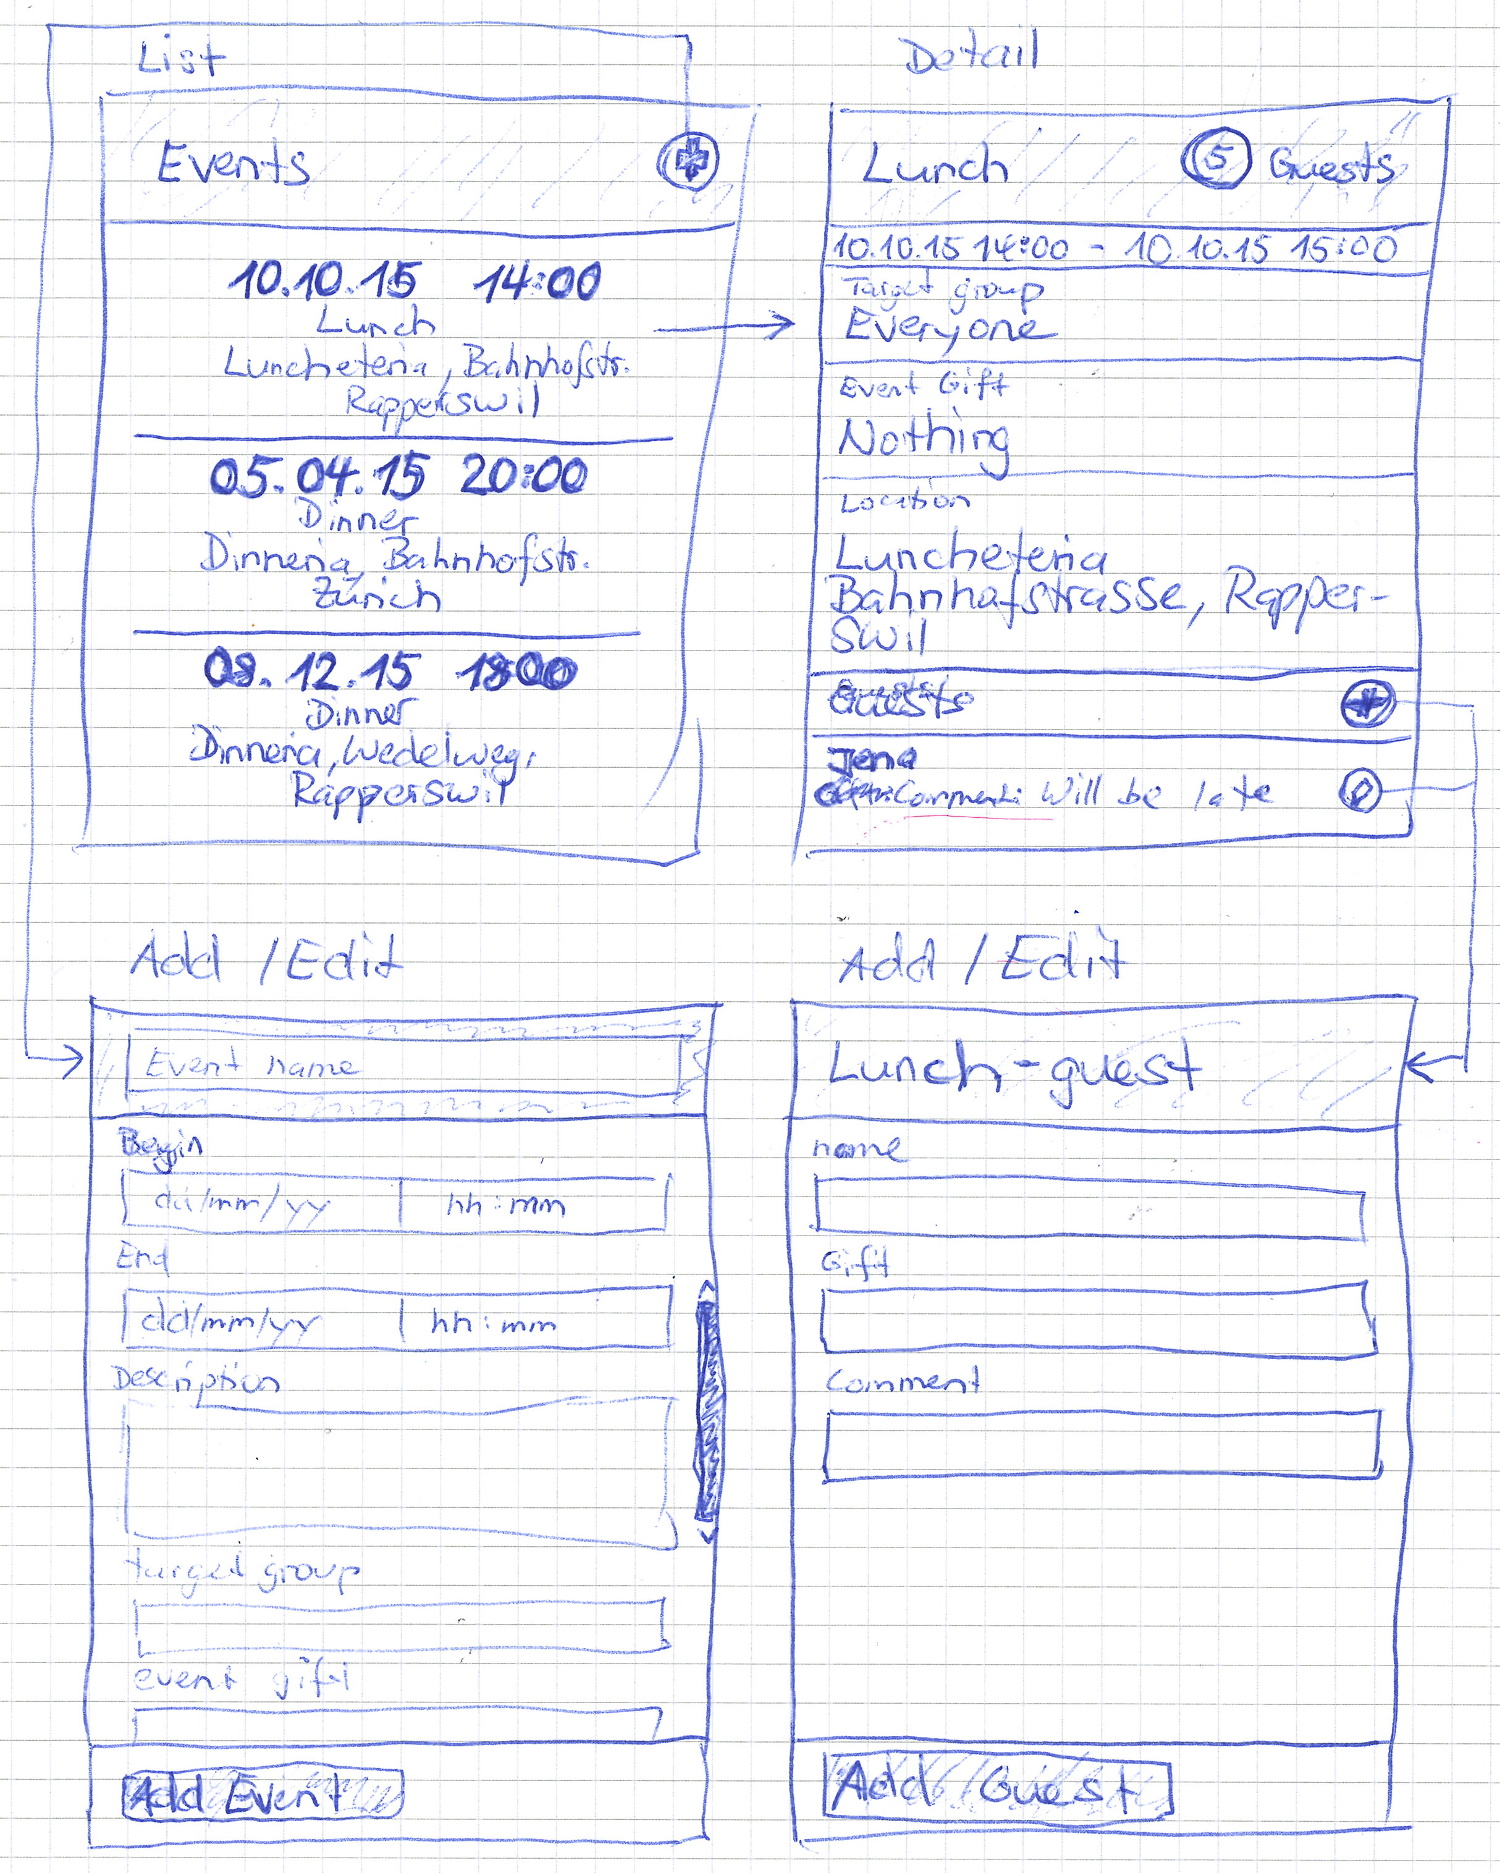 List
Events
10.10.15 14:00
Lunch
Luncheteria, Bahnhofstr.
Rapperswil
05.04.15 20:00
Dinner
Dinneria, Bahnhofstr.
Zürich
08.12.15 18:00
Dinner
Dinneria, Wedelweg,
Rapperswil
Detail
Lunch 5 Guests
10.10.15 14:00 - 10.10.15 15:00
Target group
Everyone
Event Gift
Nothing
Location
Luncheteria
Bahnhofstrasse, Rapper-
swil
Guests
Jena
Comment: Will be late
Add / Edit
Event name
Begin
dd/mm/yy hh:mm
End
dd/mm/yy hh:mm
Description
target group
event gift
Add Event
Add / Edit
Lunch-guest
name
Gift
Comment
Add Guest